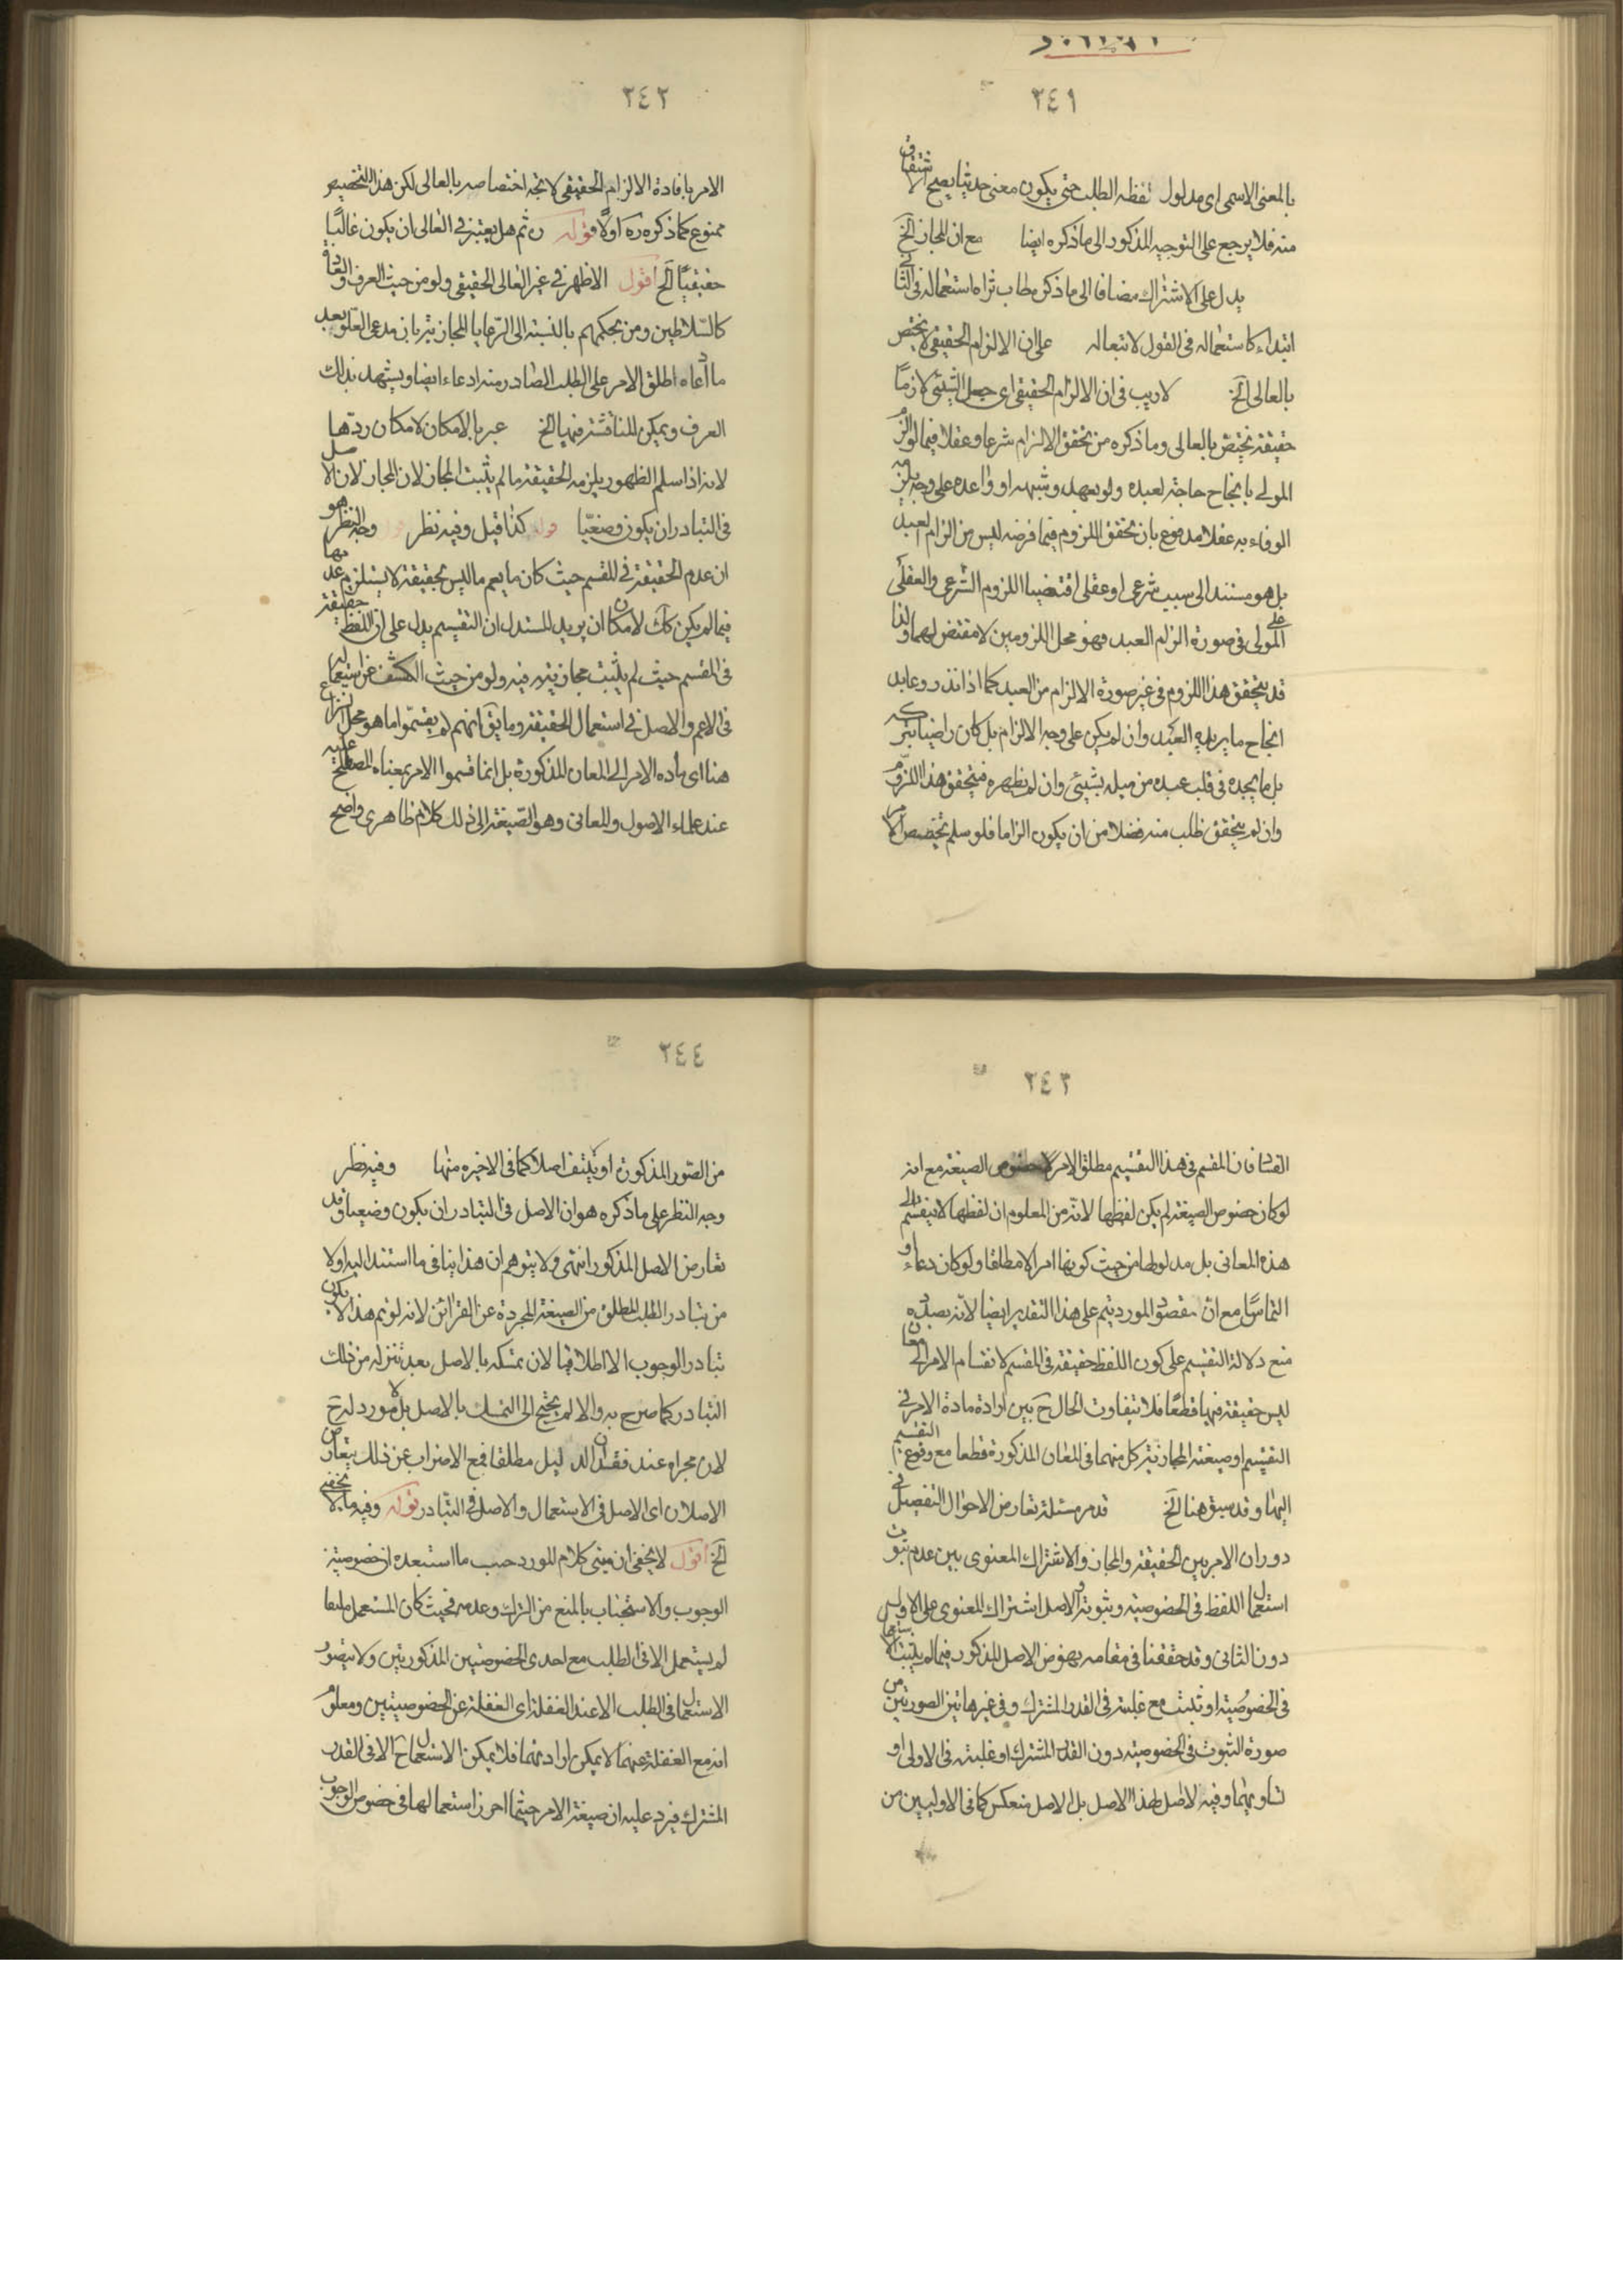 ٢٤١
بالمعنى الاسمى اى مدلول لفظه الطلب حتى يكون معنى حدثيا يصح الاشتقاق
منه فلا يرجع على التوجيه المذكور الى ما ذكره ايضا مع ان المجاز الخ
يدل على الاشتراك مضافا الى ما ذكر استعماله فى
ابتداء كاستعماله فى القول لا تبعا له على ان الالزام الحقيقى لا يختص
بالعالى الخ لا ريب فى ان الالزام الحقيقى اى جعل الشيئى لازمًا
حقيقة يختص بالعالى وما ذكره من تحقق الالزام شرعا وعقلا فيما لو الزم
المولى بانجاح حاجة لعبده ولو بعهد وشبهه او واعده على وجه يلزمه
الوفاء به عقلا مدفوع بان تحقق اللزوم فيما فرضه ليس من الزام العبد
بل هو مستند الى سبب شرعى او عقلى اقتضيا اللزوم الشرعى والعقلى
على المولى فى صورة الزام العبد فهو محل اللزومين لا مقتض لهما ولذا
قد يتحقق هذا اللزوم فى غير صورة الالزام من العبد كما اذا نذر وعاهد
انجاح ما يريده العبد وان لم يكن على وجه الالزام بل كان راضيا بتركه
بل ما يجده فى قلب عبده من ميله بشيئى وان لم يظهره فيتحقق هذا اللزوم
وان لم يتحقق طلب منه فضلا من ان يكون الزاما فلو سلم تخصيص الامر
٢٤٢
الامر بافادة الالزام الحقيقى لاتجه اختصاصه بالعالى لكن هذا التخصيص
ممنوع كما ذكره ره اولًا قوله ره ثم هل يعتبر فى العالى ان يكون عاليًا
حقيقيًا الخ اقول الاظهر فى غير العالى الحقيقى ولو من حيث العرف والعادة
كالسلاطين ومن بحكمهم بالنسبة الى الرعايا المجازية بان مدعى العلو بعد
ما ادعاه اطلق الامر على الطلب الصادر منه ادعاء ايضا ويشهد بذلك
العرف ويمكن المناقشة فيها الخ عبر بالامكان لامكان ردّها
لانه اذا سلم الظهور يلزمه الحقيقة ما لم يثبت المجاز لان المجاز لان الاصل
فى التبادر ان يكون وضعيّا قوله كذا قيل وفيه نظر وجه النظر هو
ان عدم الحقيقة فى المقسم حيث كان ما يعم ما ليس بحقيقة لا يستلزم عدمها
فيما لم يكن كك لامكان ان يريد المستدل ان التقسيم يدل على ان اللفظ حقيقة
فى المقسم حيث لم يثبت مجازيته فيه ولو من حيث الكشف عن استعماله
فى الاعم والاصل فى استعمال الحقيقة وما يق انهم لم يقسموا ما هو محل النزاع
هنا اى مادة الامر الى المعان المذكورة بل انما قسموا الامر بمعناه المصطلح عليه
عند علماء الاصول والمعانى وهو الصيغة الى ذلك كلام ظاهرى واضح
٢٤٣
الفساد فان المقسم فى هذا التقسيم مطلق الامر لا خصوص الصيغة مع انه
لو كان خصوص الصيغة لم يكن لفظها لانّه من المعلوم ان لفظها لا ينقسم الى
هذه المعانى بل مدلولها من حيث كونها امرا لا مطلقا ولو كان دعاء او
التماسًا مع ان مقصود المورد يتم على هذا التقدير ايضا لانّه بصدد
منع دلالة التقسيم على كون اللفظ حقيقة فى المقسم لانقسام الامر الى معان
ليس حقيقة فيها قطعًا فلا تتفاوت الحال ح بين ارادة مادة الامر فى
التقسيم او صيغته لمجازية كل منهما فى المعان المذكورة قطعا مع وقوع التقسيم
اليها وقد سبق هنا الخ قد مر مسئلة تعارض الاحوال التفصيل فى
دوران الامر بين الحقيقة والمجاز والاشتراك المعنوى بين عدم ثبوت
استعمال اللفظ فى الخصوصية وثبوته والاصل اشتراك المعنوى على الاول
دون الثانى وقد حققنا فى مقامه نهوض الاصل المذكور فيما لم يثبت الاستعمال
فى الخصوصية او ثبت مع غلبته فى القدر المشترك وفى غير هاتين الصورتين من
صورة الثبوت فى الخصوصية دون القدر المشترك او غلبته فى الاولى او
تساويهما وفيه لا اصل لهذا الاصل بل الاصل منعكس كما فى الاوليين من
٢٤٤
من الصور المذكورة او ينتف اصلا كما فى الاخيرة منها وفيه نظر
وجه النظر على ما ذكره هو ان الاصل فى التبادر ان يكون وضعيا وقد
تعارض الاصل المذكور انتهى ولا يتوهم ان هذا ينافى ما استند اليه اولا
من تبادر الطلب المطلق من الصيغة المجردة عن القرائن لانه لو تم هذا لا يكون
تبادر الوجوب الا اطلاقيا لان تمسكه بالاصل بعد تنزله من ذلك
التبادر كما صرح به والا لم يحتج الى التمسك بالاصل بل لا مورد له ح
لان مجراه عند فقدان الدليل مطلقا فمع الاضراب عن ذلك يتعارض
الاصلان اى الاصل فى الاستعمال والاصل فى التبادر قوله وفيه ما لا يخفى
الخ اقول لا يخفى ان مبنى كلام المورد حسب ما استبعده ان خصوصية
الوجوب والاستحباب بالمنع من الترك وعدمه فحيث كان المستعمل ملتفتا
لم يستعمل الا فى الطلب مع احدى الخصوصيتين المذكوريتين ولا يتصور
الاستعمال فى الطلب الا عند الغفلة اى الغفلة عن الخصوصيتين ومعلوم
انه مع الغفلة عنهما لا يمكن ارادتهما فلا يمكن الاستعمال ح الا فى القدر
المشترك فيرد عليه ان صيغة الامر حيثما احرز استعمالها فى خصوص الوجوب